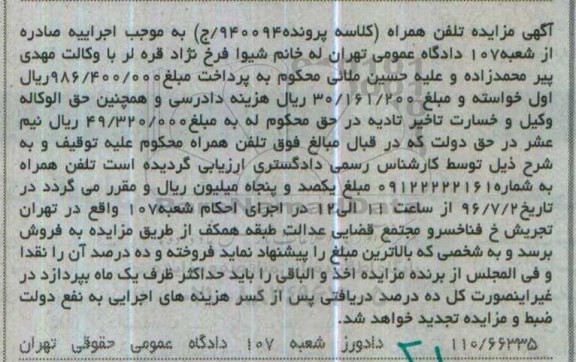 آگهی مزایده تلفن همراه (کلاسه پرونده۹۴۰۰۹۴/ج) به موجب اجراییه صادره
از شعبه۱۰۷ دادگاه عمومی تهران له خانم شیوا فرخ نژاد قره لر با وکالت مهدی
پیر محمدزاده و علیه حسین ملائی محکوم به پرداخت مبلغ۹۸۶/۴۰۰/۰۰۰ریال
اول خواسته و مبلغ ۳۰/۱۶۱/۲۰۰ ریال هزینه دادرسی و همچنین حق الوکاله
وکیل و خسارت تاخیر تادیه در حق محکوم له به مبلغ۴۹/۳۲۰/۰۰۰ ریال نیم
عشر در حق دولت که در قبال مبالغ فوق تلفن همراه محکوم علیه توقیف و به
شرح ذیل توسط کارشناس رسمی دادگستری ارزیابی گردیده است تلفن همراه
به شماره۰۹۱۲۲۲۲۲۱۶۱ مبلغ یکصد و پنجاه میلیون ریال و مقرر می گردد در
تاریخ۹۶/۷/۲ از ساعت ۱۱ الی۱۲ در اجرای احکام شعبه۱۰۷ واقع در تهران
تجریش خ فناخسرو مجتمع قضایی عدالت طبقه همکف از طریق مزایده به فروش
برسد و به شخصی که بالاترین مبلغ را پیشنهاد نماید فروخته و ده درصد آن را نقدا
و فی المجلس از برنده مزایده اخذ و الباقی را باید حداکثر ظرف یک ماه بپردازد در
غیراینصورت کل ده درصد دریافتی پس از کسر هزینه های اجرایی به نفع دولت
ضبط و مزایده تجدید خواهد شد.
۱۱۰/۶۶۳۳۵ دادورز شعبه ۱۰۷ دادگاه عمومی حقوقی تهران
۲۱